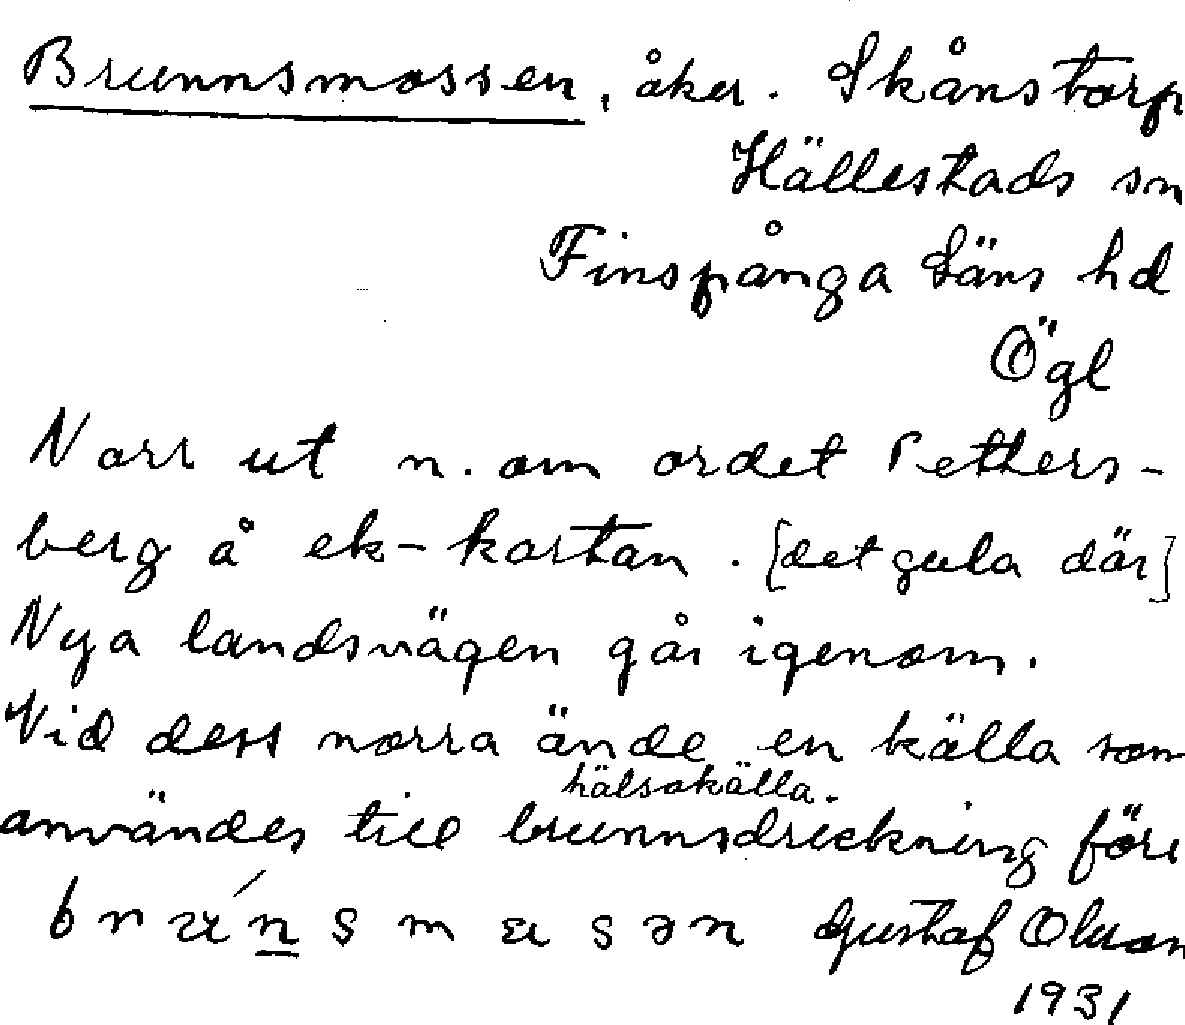 Brunnsmossen, åker. Skånstorp
Hällestads sn
Finspånga läns hd
Ögl
Norr ut n. om ordet Petters-
berg å ek-kartan. [det gula där]
Nya landsvägen går igenom.
Vid dess norra ände en källa som
hälsokälla.
användes till brunnsdrickning förr
Gustaf Olsson
1931